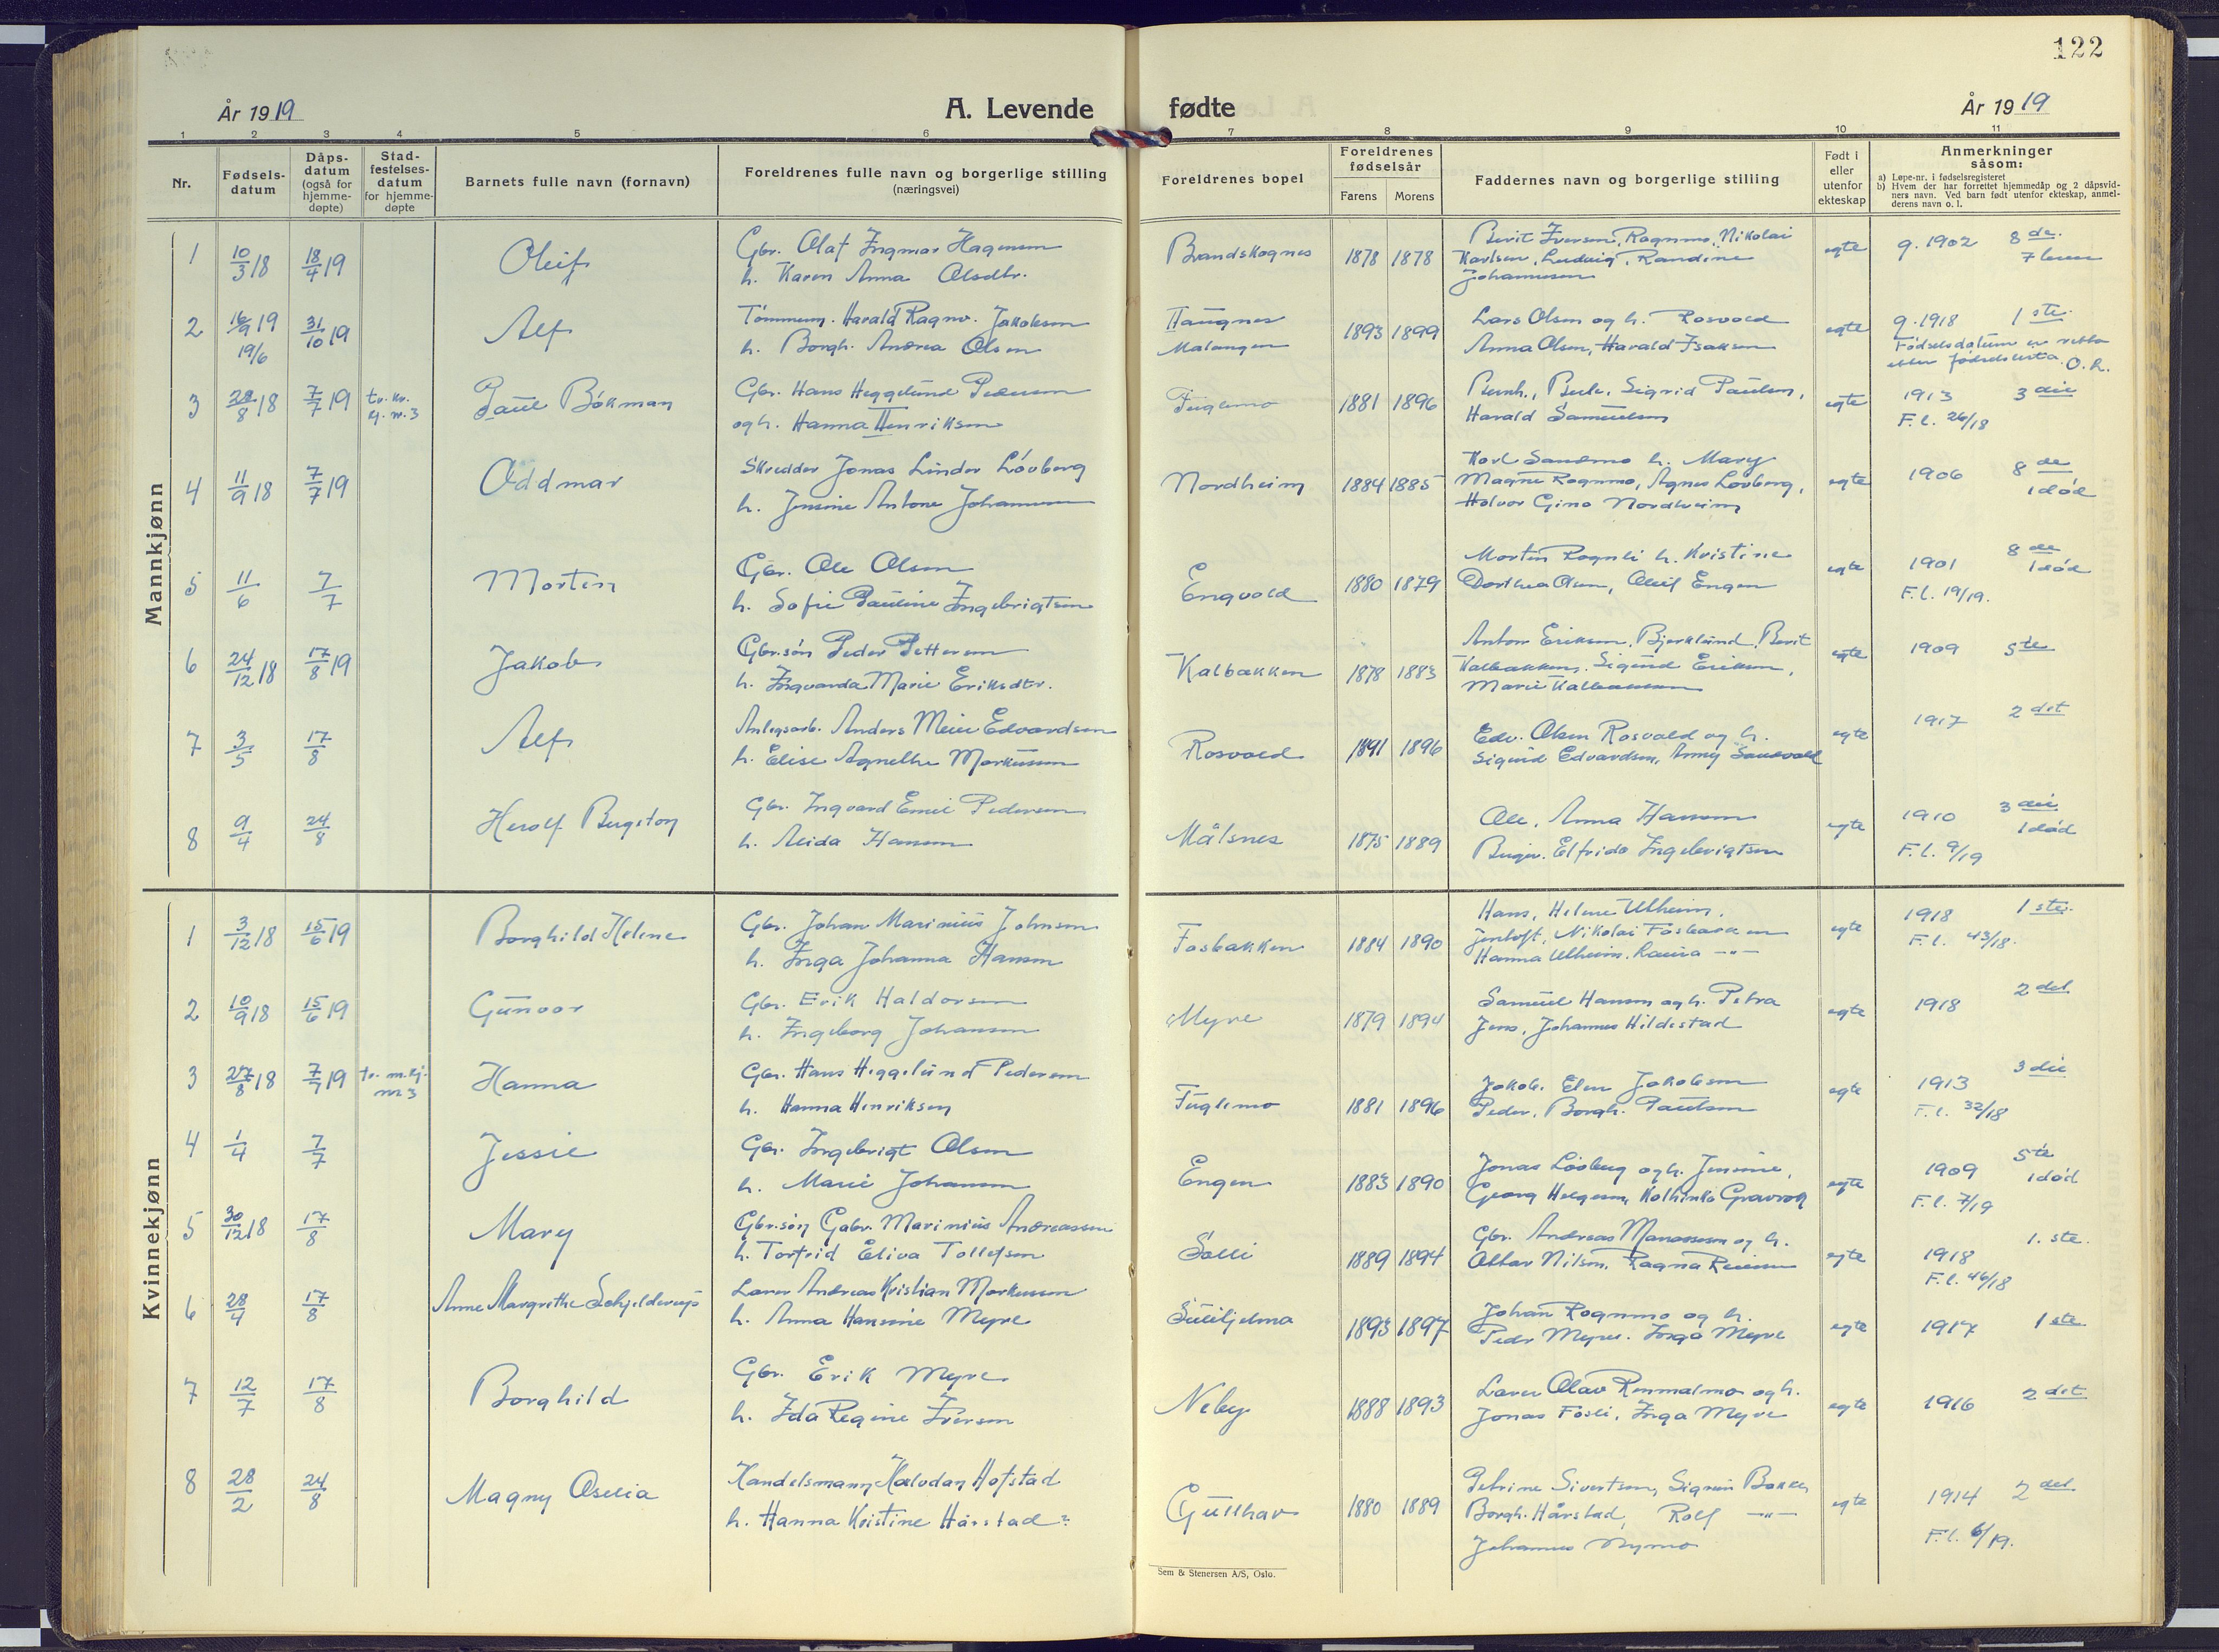 122
År 1919
A. Levende fødte
År 1919
1 2 3 4 5 6 7 8 9 10 11
Nr.
Fødsels-
datum
Dåps-
datum
(også for
hjemme-
døpte)
Stad-
festelses-
datum
for hjemme-
døpte
Barnets fulle navn (fornavn)
Foreldrenes fulle navn og borgerlige stilling
(næringsvei)
Foreldrenes bopel
Foreldrenes
fødselsår
Farens Morens
Faddernes navn og borgerlige stilling
Født i
eller
utenfor
ekteskap
Anmerkninger
såsom:
a) Løpe-nr. i fødselsregisteret
b) Hvem der har forrettet hjemmedåp og 2 dåpsvid-
ners navn. Ved barn født utenfor ekteskap, anmel-
derens navn o. l.
Mannkjønn
1 10/3 18 18/4 19 Oleif
Gbr. Olaf Ingmar Hagensen
h. Karen Anna Olsdtr.
Brandskognes 1878 1878
Berit Iversen, Ragnmo, Nikolai
Karlsen, Ludvig, Randine
Johannesen
egte g. 1902 8 de.
2 16/9 19 31/10 19 Alf
19/6
Harald Ragnv. Jakobsen
h. Borgh. Andrea Olsen
Haugnes
Malangen
1893 1899
Lars Olsen og h. Rosvold
Anna Olsen, Harald Isaksen
egte g. 1918 1 ste.
Fødselsdatum er retta
etter O.h.
3 28/8 18 7/7 19 Paul Bökman
Gbr. Hans Heggelund Pedersen
og h. Hanna Henriksen
Fuglemo 1881 1896
Sigrid Paulsen,
Harald Samuelsen
egte 1913 3 die
F.l. 26/18
4 11/9 18 7/7 19 Oddmar
Skredder Jonas Linder Lövberg
h. Jensine Antone Johannesen
Nordheim 1884 1885
Karl Sandmo h. Mary
Magne Rognmo, Agnes Lövberg,
Halvor Gino Nordheim
egte 1906 8 de
1 död
5 11/6 7/7 Morten
Gbr. Ole Olsen
h. Sofie Pauline Ingebrigtsen
Engvold 1880 1879
Morten Rognli h. Kristine
Dorthea Olsen, Oleif Engen
egte 1901 8 de
1 död
F.l. 19/19.
6 24/12 18 17/8 19 Jakob
Gbr.sön Peder Pettersen
h. Ingvarda Marie Eriksdtr.
Kalbakken 1878 1883
Anton Eriksen, Bjerklund, Berit
Kalbakken, Sigurd Eriksen,
Marie Kalbakken
egte 1909 5te
7 3/5 17/8 Alf
Anlegsarb. Anders Meier Edvardsen
h. Elise Agnethe Markussen
Rosvold 1891 1896
Edv. Olsen Rosvold og h.
Sigurd Edvardsen, Anny Sandvold
egte 1917 2 det
8 9/4 24/8 Herolf Bergston
Gbr. Ingvard Emil Pedersen
h. Alida Hansen
Målsnes 1875 1889
Ole, Anna Hansen
Birger, Elfrida Ingebrigtsen
egte 1910 3 die
1 död
F.l. 9/19
Kvinnekjønn
1 3/12 18 15/6 19 Borghild Helene
Gbr. Johan Marinius Johnsen
h. Inga Johanna Hansen
Fosbakken 1884 1890
Hans, Helene Ulheim,
Jentoft, Nikolai Fosbakken
Hanna Ulheim, Laura -"-
egte 1918 1 ste.
F.l. 43/18.
2 10/9 18 15/6 19 Gunvor
Gbr. Erik Haldorsen
h. Ingeborg Johansen
Myre 1879 1894
Samuel Hansen og h. Petra
Jens, Johannes Hildestad
egte 1918 2 det
3 27/8 18 7/7 19 Hanna
Gbr. Hans Heggelund Pedersen
h. Hanna Henriksen
Fuglemo 1881 1896
Jakob, Elen Jakobsen
Peder, Borgh. Paulsen
egte 1913 3 die
F.l. 32/18
4 1/4 7/7 Jessie
Gbr. Ingebrigt Olsen
h. Marie Johansen
Engen 1883 1890
Jonas Lövberg og h. Jensine,
Georg Helgesen, Kathinka Gravrog
egte 1909 5te
1 död
F.l. 7/19
5 30/12 18 17/8 Mary
Gbr.sön Gabr. Marinius Andreassen
h. Torfrid Eliva Tollefsen
Solli 1889 1894
Gbr. Andreas Manassesen og h.
Ottar Nilsen, Ragna
egte 1918 1. ste.
F.l. 46/18
6 28/4 17/8 Anne Margrethe Schjelderup
Lærer Andreas Kristian Markussen
h. Anna Hansine Myre
1893 1897
Johan Rognmo og h.
Peder Myre, Inga Myre
egte 1917 1 ste
7 12/7 17/8 Borghild
Gbr. Erik Myre
h. Ida Regine Iversen
Neby 1888 1893
Lærer Olav Renmælmo og h.
Jonas Fosli, Inga Myre
egte 1916 2 det
8 28/2 24/8 Magny Oselia
Handelsmann Halvdan Hofstad
h. Hanna Kristine Hårstad
Gullhav 1880 1889
Petrine Sivertsen, Sigrun Bakken
Borgh. Hårstad, Rolf -"-
Johannes Nymo
egte 1914 2 det
F.l. 6/19.
Sem & Stenersen A/S, Oslo.